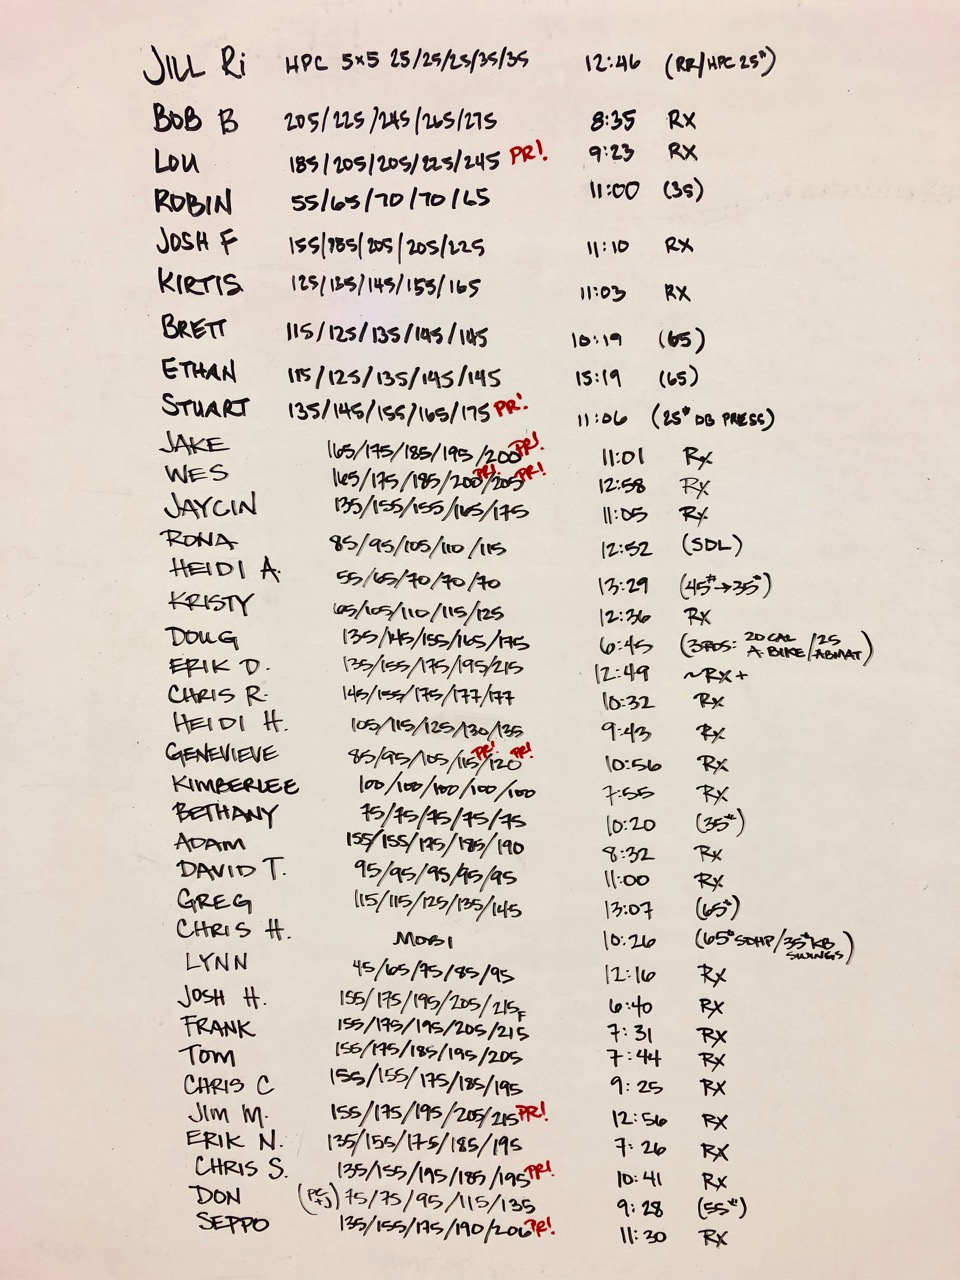 JILL Ri HPC 5x5 25/25/25/35/35 12:46 (RR/HPC 25#)
BOB B 205/225/245/265/275 8:35 RX
LOU 185/205/205/225/245 PR! 9:23 RX
ROBIN 55/65/70/70/65 11:00 (35)
JOSH F 155/185/205/205/225 11:10 RX
KIRTIS 125/135/145/155/165 11:03 RX
BRETT 115/125/135/145/145 10:19 (65)
ETHAN 115/125/135/145/145 15:19 (65)
STUART 135/145/155/165/175 PR! 11:06 (25# DB PRESS)
JAKE 165/175/185/195/200 PR! 11:01 Rx
WES 165/175/185/200 PR!/205 PR! 12:58 Rx
JAYCIN 135/155/155/165/175 11:05 Rx
RONA 85/95/105/110/115 12:52 (SDL)
HEIDI A. 55/65/70/70/70 13:29 (45#→35#)
KRISTY 65/105/110/115/125 12:36 Rx
DOUG 135/145/155/165/175 6:45 (3RDS: 20 CAL A. BIKE/25 ABMAT)
ERIK D. 135/155/175/195/215 12:49 ~RX+
CHRIS R. 145/155/175/177/177 10:32 Rx
HEIDI H. 105/115/125/130/135 9:43 Rx
GENEVIEVE 85/95/105/115 PR!/120 PR! 10:56 Rx
KIMBERLEE 100/100/100/100/100 7:55 Rx
BETHANY 75/75/75/75/75 10:20 (35#)
ADAM 155/155/175/185/190 8:32 Rx
DAVID T. 95/95/95/95/95 11:00 Rx
GREG 115/115/125/135/145 13:07 (65#)
CHRIS H. MOBI 10:26 (65# SDHP/35# KB SWINGS)
LYNN 45/65/75/85/95 12:16 Rx
JOSH H. 155/175/195/205/215F 6:40 Rx
FRANK 155/175/195/205/215 7:31 Rx
TOM 155/175/185/195/205 7:44 Rx
CHRIS C 155/155/175/185/195 9:25 Rx
JIM M. 155/175/195/205/215 PR! 12:56 Rx
ERIK N. 135/155/175/185/195 7:26 Rx
CHRIS S. 135/155/195/185/195 PR! 10:41 Rx
DON 75/75/95/115/135 9:28 (55#)
SEPPO 135/155/175/190/206 PR! 11:30 Rx